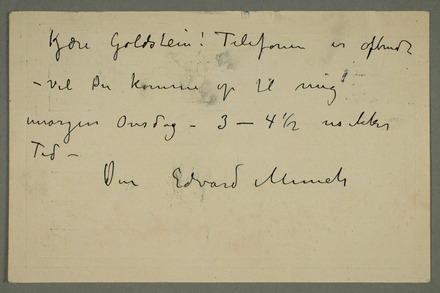 Kjære Goldstein! Telefonen er afbrudt
– vil Du komme op til mig
imorgen Onsdag – 3 – 4 1/2
Tid –
Din Edvard Munch